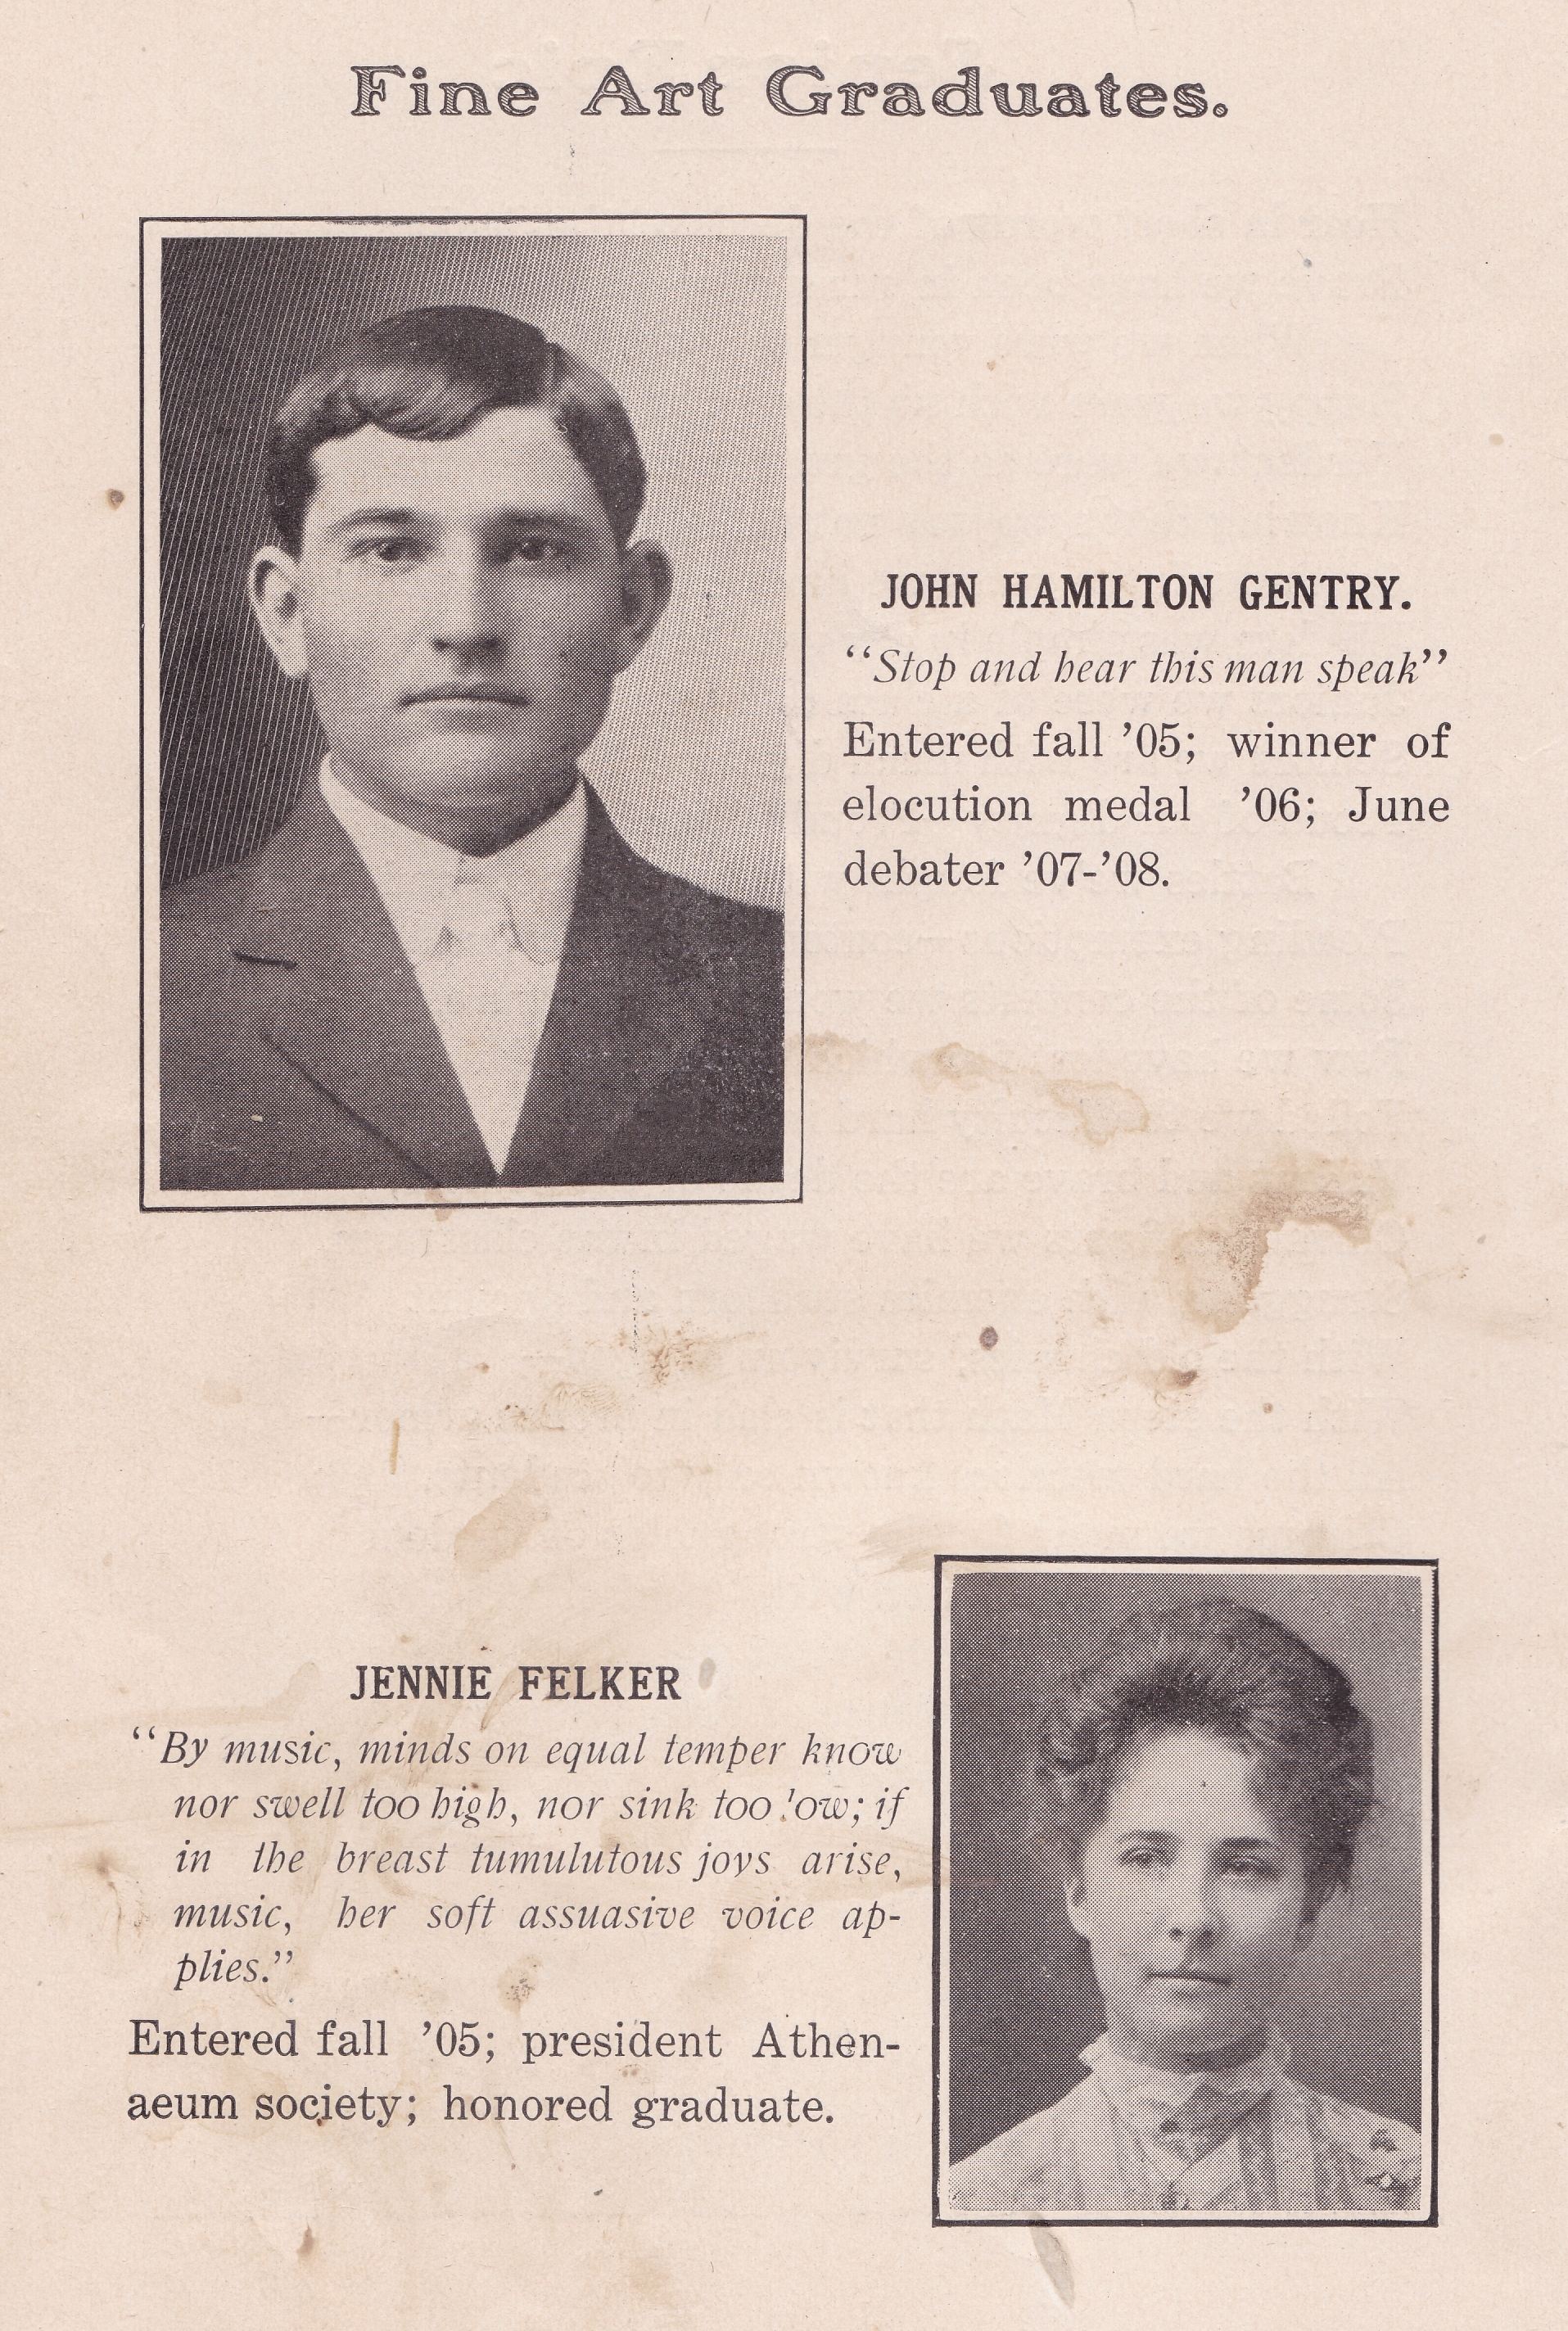 Fine Art Graduates.
JOHN HAMILTON GENTRY.
“Stop and hear this man speak”
Entered fall ’05; winner of
elocution medal ’06; June
debater ’07-’08.
JENNIE FELKER
“By music, minds on equal temper know
nor swell too high, nor sink too low; if
in the breast tumulutous joys arise,
music, her soft assuasive voice ap-
plies.”
Entered fall ’05; president Athen-
aeum society; honored graduate.